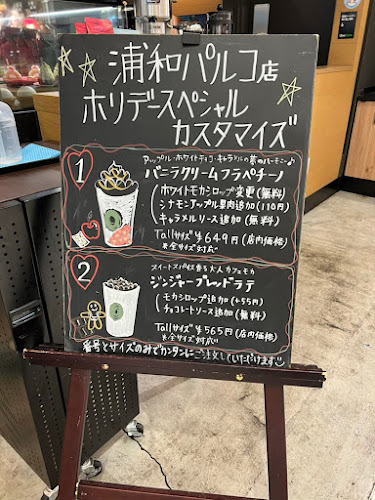 浦和パルコ店
ホリデースペシャル
カスタマイズ
1
アップル・ホワイトチョコ・キャラメルの夢のハーモニー♪
バニラクリームフラペチーノ
ホワイトモカシロップ変更(無料)
シナモンアップル果肉追加(110円)
キャラメルソース追加(無料)
Tallサイズ¥649円(店内価格)
※全サイズ対応
2
スイートスパイス香る大人カフェモカ
ジンジャーブレッドラテ
モカシロップ追加(+55円)
チョコレートソース追加(無料)
Tallサイズ¥565円(店内価格)
※全サイズ対応
番号とサイズのみでカンタンにご注文していただけます